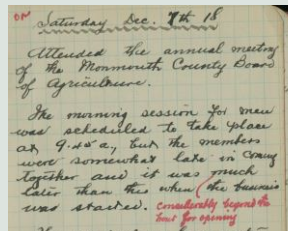 Saturday Dec. 7th 18
Attended the annual meeting
of the Monmouth County Board
of Agriculture.
The morning session for men
was scheduled to take place
at 9.45 a, but the members
were somewhat late in coming
together and it was much
later than this when the business
was started. considerably beyond the
hour for opening